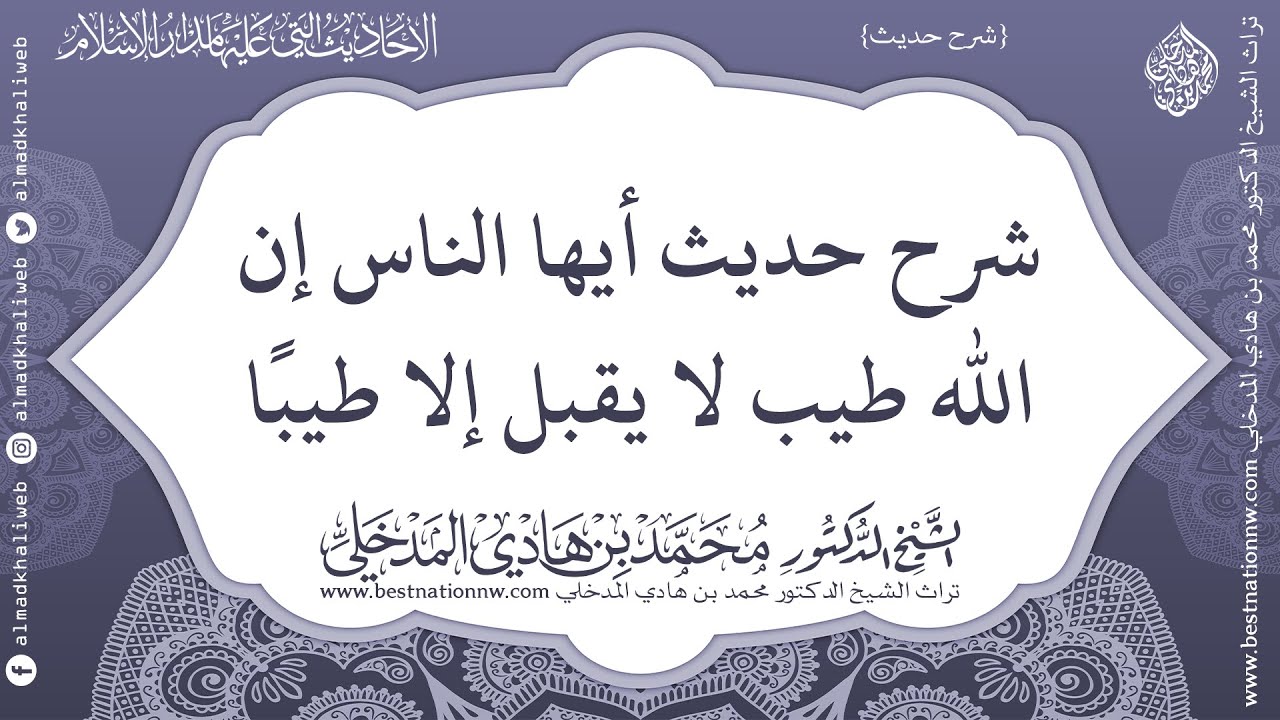 الأحاديث التي عليها مدار الإسلام
{شرح حديث}
شرح حديث أيها الناس إن
الله طيب لا يقبل إلا طيبًا
الشَّيْخِ الدُّكْتُورِ مُحَمَّد بِن هَادِي المَدخَلِيِّ
تراث الشيخ الدكتور محمد بن هادي المدخلي www.bestnationnw.com
تراث الشيخ الدكتور محمد بن هادي المدخلي www.bestnationnw.com
almadkhaliweb
almadkhaliweb
almadkhaliweb
محمد بن هادي المدخلي